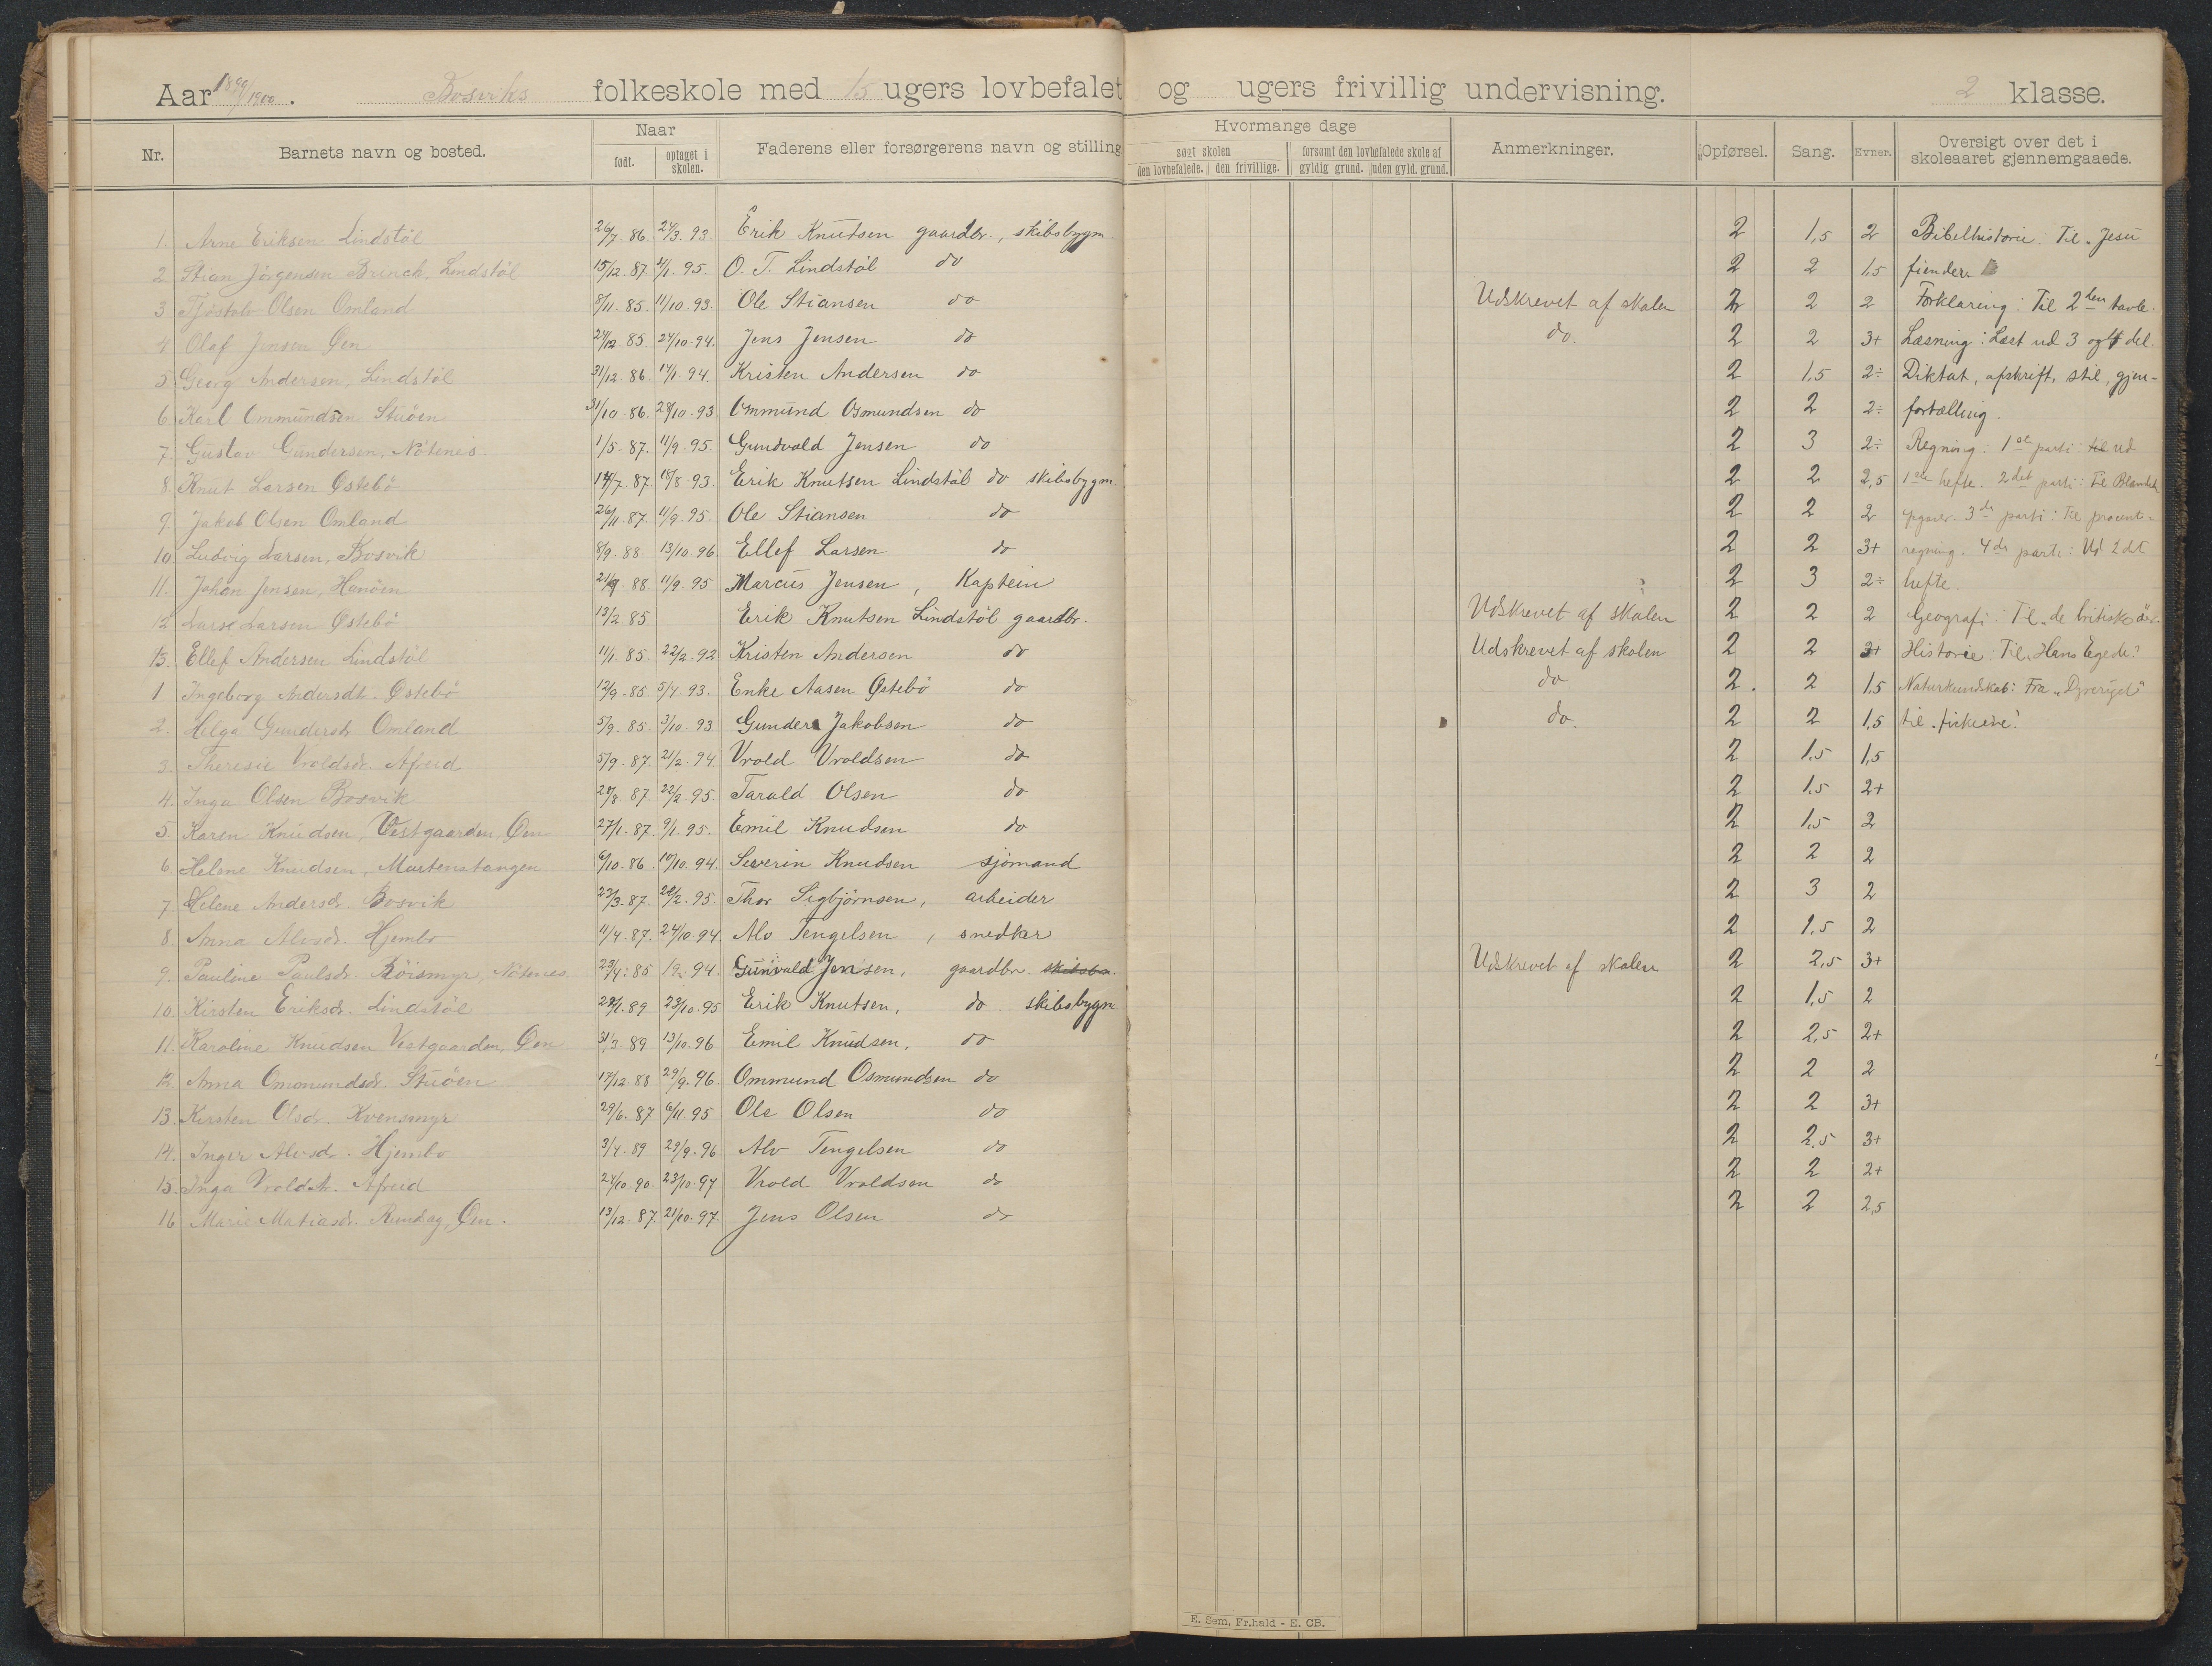 Aar 1899/1900. Bosviks folkeskole med 15 ugers lovbefalet og ugers frivillig undervisning. 2 klasse.
Nr. Barnets navn og bosted. Naar født. optaget i skolen. Faderens eller forsørgerens navn og stilling Hvormange dage søgt skolen den lovbefalede. den frivillige. forsømt den lovbefalede skole af gyldig grund. uden gyld. grund. Anmerkninger. Opførsel. Sang. Evner. Oversigt over det i skoleaaret gjennemgaaede.
1. Arne Eriksen Lindstöl 26/7. 86. 24/3. 93. Erik Knutsen gaardbr., skibsbygm. 2 1,5 2 Bibelhistorie: Til „Jesu
2 Stian Jörgensen Brinch. Lindstöl 15/12. 87. 4/1. 95. O. T. Lindstöl do 2 2 1,5 fiender
3 Tjöstolv Olsen Omland 8/11. 85. 11/10. 93. Ole Stiansen do Udskrevet af skolen 2 2 2 Forklaring: Til 2den tavle.
4 Olaf Jensen Øen 24/12. 85. 24/10. 94. Jens Jensen do do. 2 2 3+ Læsning: Læst ud 3 og 4 del.
5. Georg Andersen, Lindstöl 31/12. 86. 17/1. 94. Kristen Andersen do 2 1,5 2÷ Diktat, afskrift, stil, gjen-
6 Karl Ommundsen Stuöen 31/10. 86. 28/10. 93 Ommund Osmundsen do 2 2 2÷ fortælling.
7. Gustav Gundersen, Nötenes. 1/5. 87. 11/9. 95. Gundvald Jensen do 2 3 2÷ Regning: 1ste parti: til ud
8. Knut Larsen Østebö 14/7. 87. 18/8. 93. Erik Knutsen Lindstöl do skibsbygm 2 2 2,5 1ste hefte. 2det parti: Til
9. Jakob Olsen Omland 26/11. 87. 11/9. 95. Ole Stiansen do 2 2 2 3die parti: Til procent-
10. Ludvig Larsen, Bosvik 8/9. 88. 13/10. 96. Ellef Larsen do 2 2 3+ regning. 4de parti: Ud 2det
11. Johan Jensen, Hanöen 21/9. 88. 11/9. 95 Marcus Jensen, Kaptein 2 3 2÷ hefte.
12 Larse Larsen Østebö 13/2. 85 Erik Knutsen Lindstöl gaardbr. Udskrevet af skolen 2 2 2 Geografi: Til „de britiske öer.
13. Ellef Andersen Lindstöl 11/1. 85. 22/2. 92 Kristen Andersen do Udskrevet af skolen 2 2 3+ Historie: Til „Hans Egede."
1 Ingeborg Andersdt. Østebö 12/9. 85. 5/4. 93. Enke Aasen Østebö do do 2. 2 1,5 Naturkundskab: Fra „Dyreriget"
2. Helga Gundersdr. Omland 5/9. 85. 3/10. 93 Gunder Jakobsen do do. 2 2 1,5 til „fiskene."
3. Theresie Vroldsdr. Afreid 5/9. 87. 21/2. 94. Vrold Vroldsen do 2 1,5 1,5
4. Inga Olsen Bosvik 28/8. 87. 22/2. 95. Tarald Olsen do 2 1,5 2+
5. Karen Knudsen, Vestgaarden, Øen 27/1. 87. 9/1. 95. Emil Knudsen do 2 1,5 2
6. Helene Knudsen, Mortenstangen 6/10. 86. 10/10. 94. Severin Knudsen sjömand 2 2 2
7. Helene Andersdr. Bosvik 23/3. 87. 21/2. 95. Thor Sigbjörnsen, arbeider 2 3 2
8. Anna Alvsdr. Hjembo 11/4. 87. 24/10. 94. Alv Tengelsen, snedker 2 1,5 2
9. Pauline Paulsdr. Röismyr, Nötenes 23/4. 85 19/2. 94. Gunvald Jensen, gaardbr. skibsbr. Udskrevet af skolen 2 2,5 3+
10. Kirsten Eriksdr. Lindstöl 28/1. 89 23/10. 95 Erik Knutsen, do. skibsbygm 2 1,5 2
11. Karoline Knudsen Vestgaarden, Øen 31/3. 89 13/10. 96 Emil Knudsen, do 2 2,5 2+
12. Anna Ommundsdr. Stuöen 17/12. 88 29/9. 96. Ommund Osmundsen do 2 2 2
13. Kirsten Olsdr. Kvensmyr 29/6. 87 6/11. 95 Ole Olsen do 2 2 3+
14. Inger Alvsdr. Hjembo 3/4. 89 29/9. 96 Alv Tengelsen do 2 2,5 3+
15. Inga Vroldsdr. Afreid 24/10. 90. 23/10. 97 Vrold Vroldsen do 2 2 2+
16 Marie Matiasdr. Øen. 13/12. 87. 21/10. 97. Jens Olsen do 2 2 2,5
E. Sem, Fr.hald - E. CB.